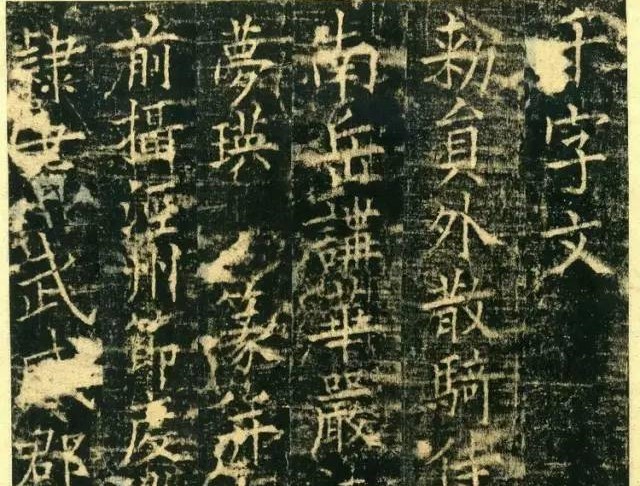 千字文
勑員外散騎侍
南岳講華嚴
夢瑛 篆并
前攝涇州節度
隸 武 郡